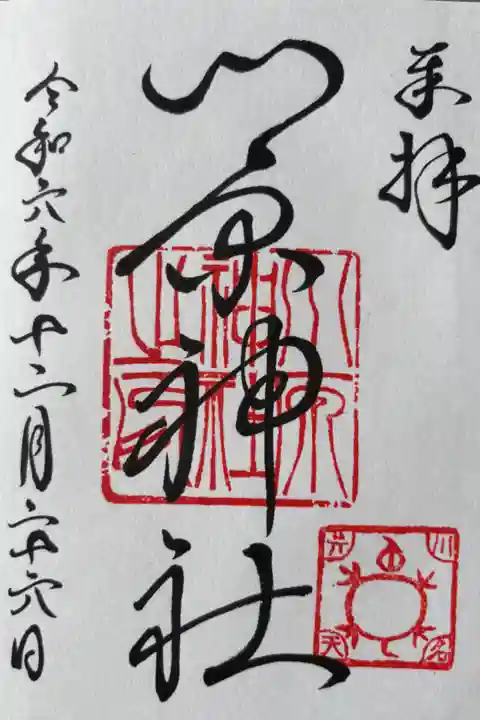 奉拝
川原神社
川原
神社
之印
川名
弁天
令和六年十二月二十六日